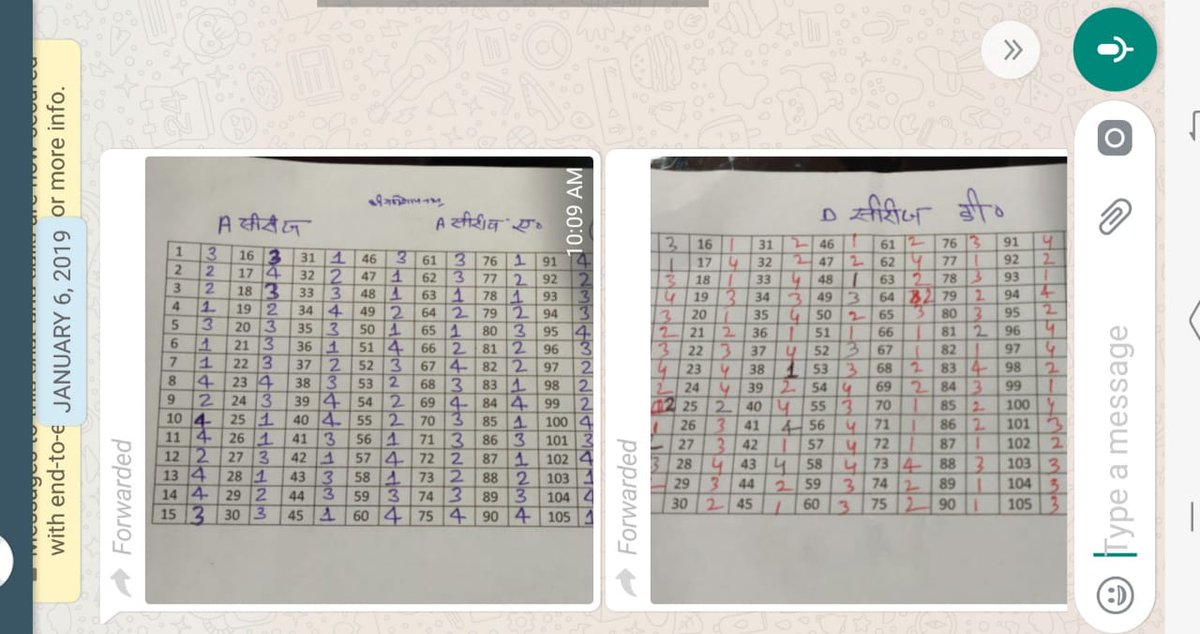 with end-to-e
or more info.
JANUARY 6, 2019
Forwarded
A सीरीज A सीरीज ए०
1 3 16 3 31 1 46 3 61 3 76 1 91 4
2 2 17 4 32 2 47 1 62 3 77 2 92 2
3 2 18 3 33 3 48 1 63 1 78 1 93 3
4 1 19 2 34 4 49 2 64 2 79 2 94 3
5 3 20 3 35 3 50 1 65 1 80 3 95 4
6 1 21 3 36 1 51 4 66 2 81 2 96 3
7 1 22 3 37 2 52 3 67 4 82 2 97 2
8 4 23 4 38 3 53 2 68 3 83 1 98 2
9 2 24 3 39 4 54 2 69 4 84 4 99 2
10 4 25 1 40 4 55 2 70 3 85 1 100 4
11 4 26 1 41 3 56 1 71 3 86 3 101 3
12 2 27 3 42 1 57 4 72 2 87 1 102 4
13 4 28 1 43 3 58 1 73 2 88 2 103 1
14 4 29 2 44 3 59 3 74 3 89 3 104
15 3 30 3 45 1 60 4 75 4 90 4 105 1
10:09 AM
Forwarded
D सीरीज डी०
3 16 1 31 2 46 1 61 2 76 3 91 4
1 17 4 32 2 47 2 62 4 77 1 92 2
3 18 1 33 4 48 1 63 2 78 3 93 1
4 19 3 34 3 49 3 64 2 79 2 94 4
3 20 1 35 4 50 2 65 3 80 3 95 2
2 21 2 36 1 51 1 66 1 81 2 96 4
3 22 3 37 4 52 3 67 1 82 1 97 4
4 23 4 38 1 53 3 68 2 83 4 98 2
2 24 4 39 2 54 4 69 2 84 3 99 1
2 25 2 40 4 55 3 70 1 85 2 100 4
1 26 3 41 4 56 4 71 1 86 2 101 3
27 3 42 1 57 4 72 1 87 1 102 2
3 28 4 43 4 58 4 73 4 88 3 103 3
29 3 44 2 59 3 74 2 89 1 104 3
30 2 45 1 60 3 75 2 90 1 105 3
Type a message